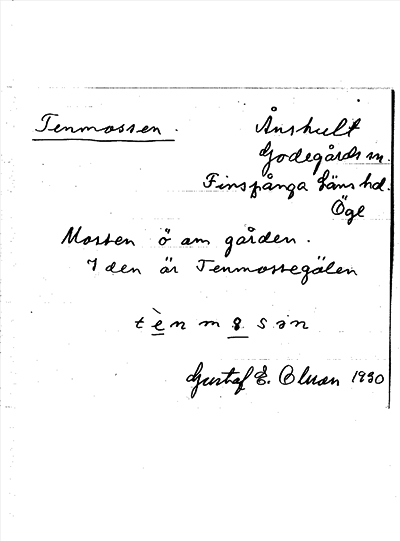 Tenmossen. Ånshult
Godegårds sn.
Finspånga läns hd.
Ögl
Mossen ö om gården.
I den är Tenmossegölen
Gustaf E. 1930